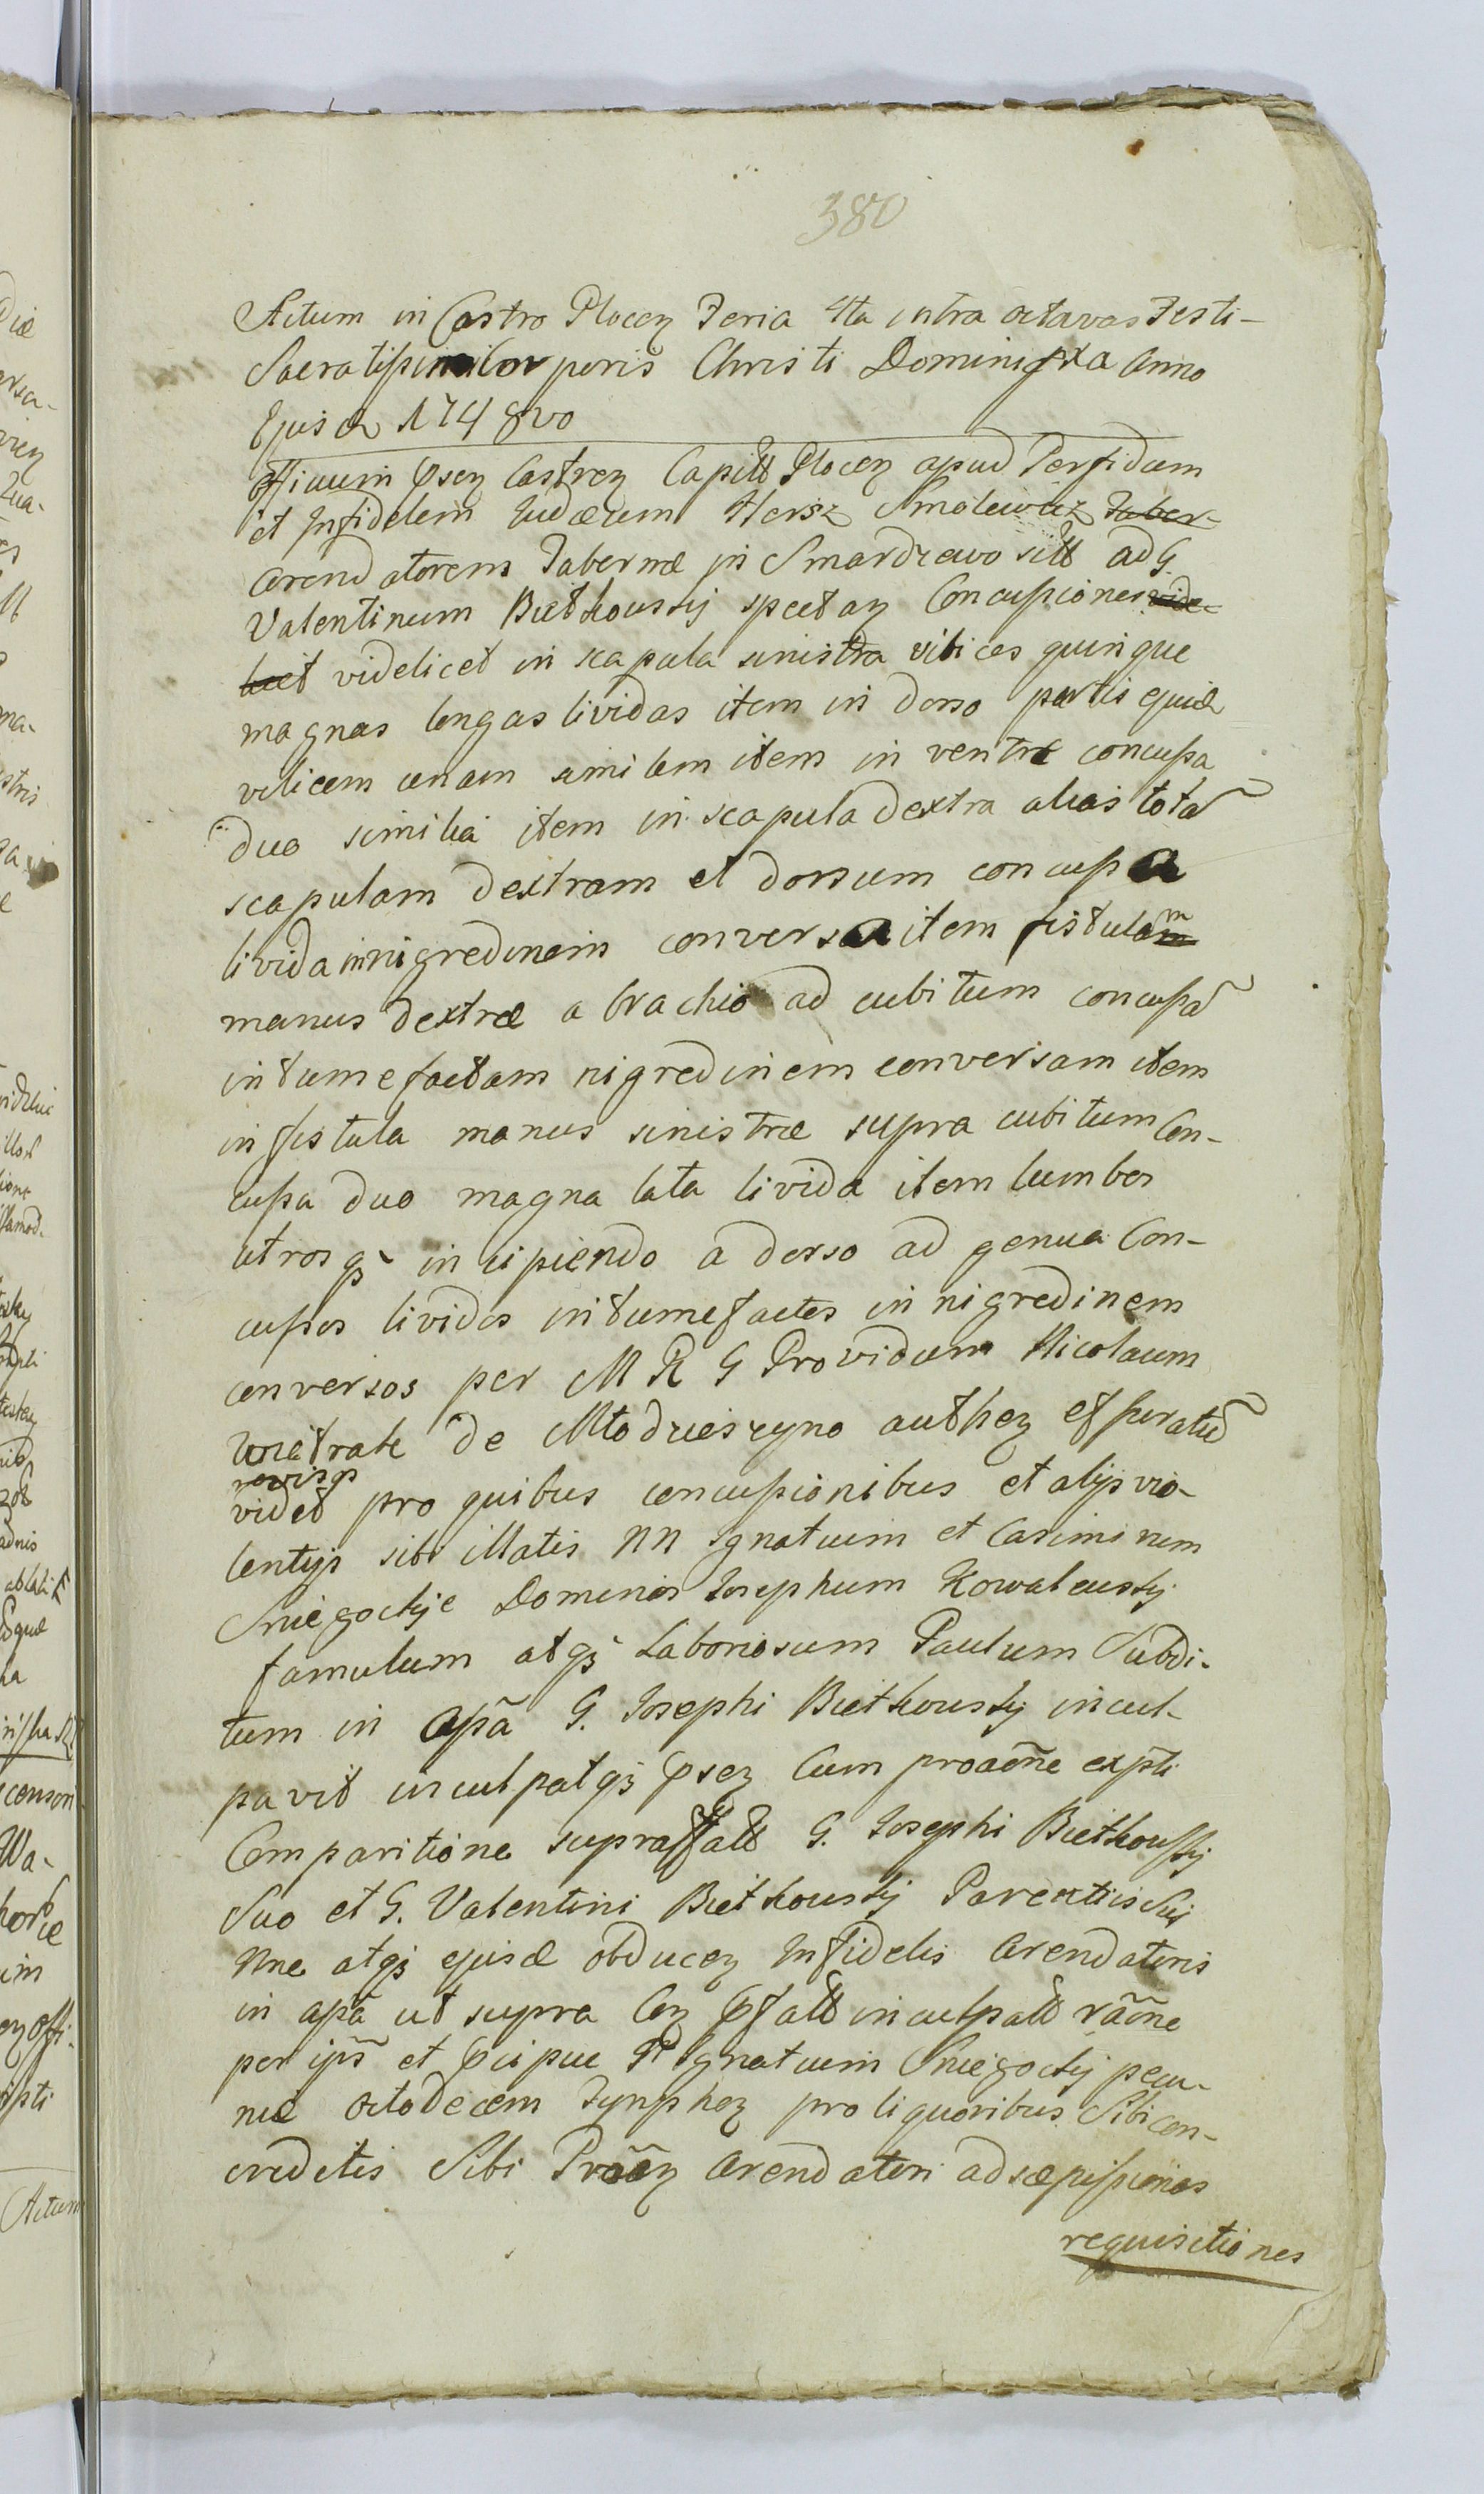 380
Actum in Castro Plocen Feria 4ta intra octavas Festi-
Sacratissimi Corporis Christi Domini pxa Anno
Ejusd 1748vo
Officium Psen Castren Capitt Plocen apud Perfidum
et Infidelem Judæum Hersz Smolewicz Taber-
Arendatorem Tabernæ in Smardzewo sitt ad G.
Valentinum Biełkouskij spectan Concussiones vide-
licet videlicet in scapula sinistra vibices quinque
magnas longas lividas item in dorso partis ejusd
vibicem unam similem item in ventre concussa
duo similia item in scapula dextra alias totã
scapulam dextram et dorsum concussa
livida in nigredinem conversa item fistulam
manus dextræ a brachio ad cubitum concussã
intumefactam nigredinem conversam item
in fistula manus sinistræ supra cubitum Con-
cussa duo magna lata livida item lumbos
utrosq incipiendo a dorso ad genua Con-
cussos lividos intumefactos in nigredinem
conversos per M R G Providum Nicolaum
de authen et juratũ
novisq
vidit pro quibus concussionibus et alijs vio-
lentijs sibi illatis NN Ignatium et Casimirum
Sniegockie Dominos Josephum Kowaleuskij
famulum atq Laboriosum Paulum Subdi-
tum in Apã G. Josephi Biełkouskij incul-
pavit inculpatq Psen Cum proaõne exp̃ti
Comparitione supra G. Josephi Biełkouskij
Suo et G. Valentini Biełkouskij Parentis Sui
Nne atq ejusd obducen Infidelis Arendatoris
in apã ut supra Con Pfatt inculpatt rãõne
per ip̃s et Pcipue Ignatium Sniegockij pecu-
niæ octodecem Tynphon pro liquoribus Sibi con-
creditis Sibi Arendatori ad sæpissimas
requisitiones